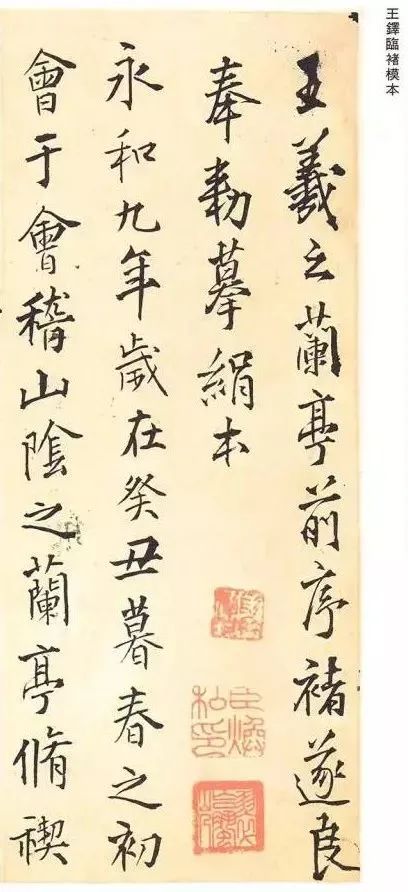 王鐸臨褚模本
王羲之蘭亭前序褚遂良
奉勑摹絹本
永和九年歲在癸丑暮春之初
會于會稽山陰之蘭亭脩禊